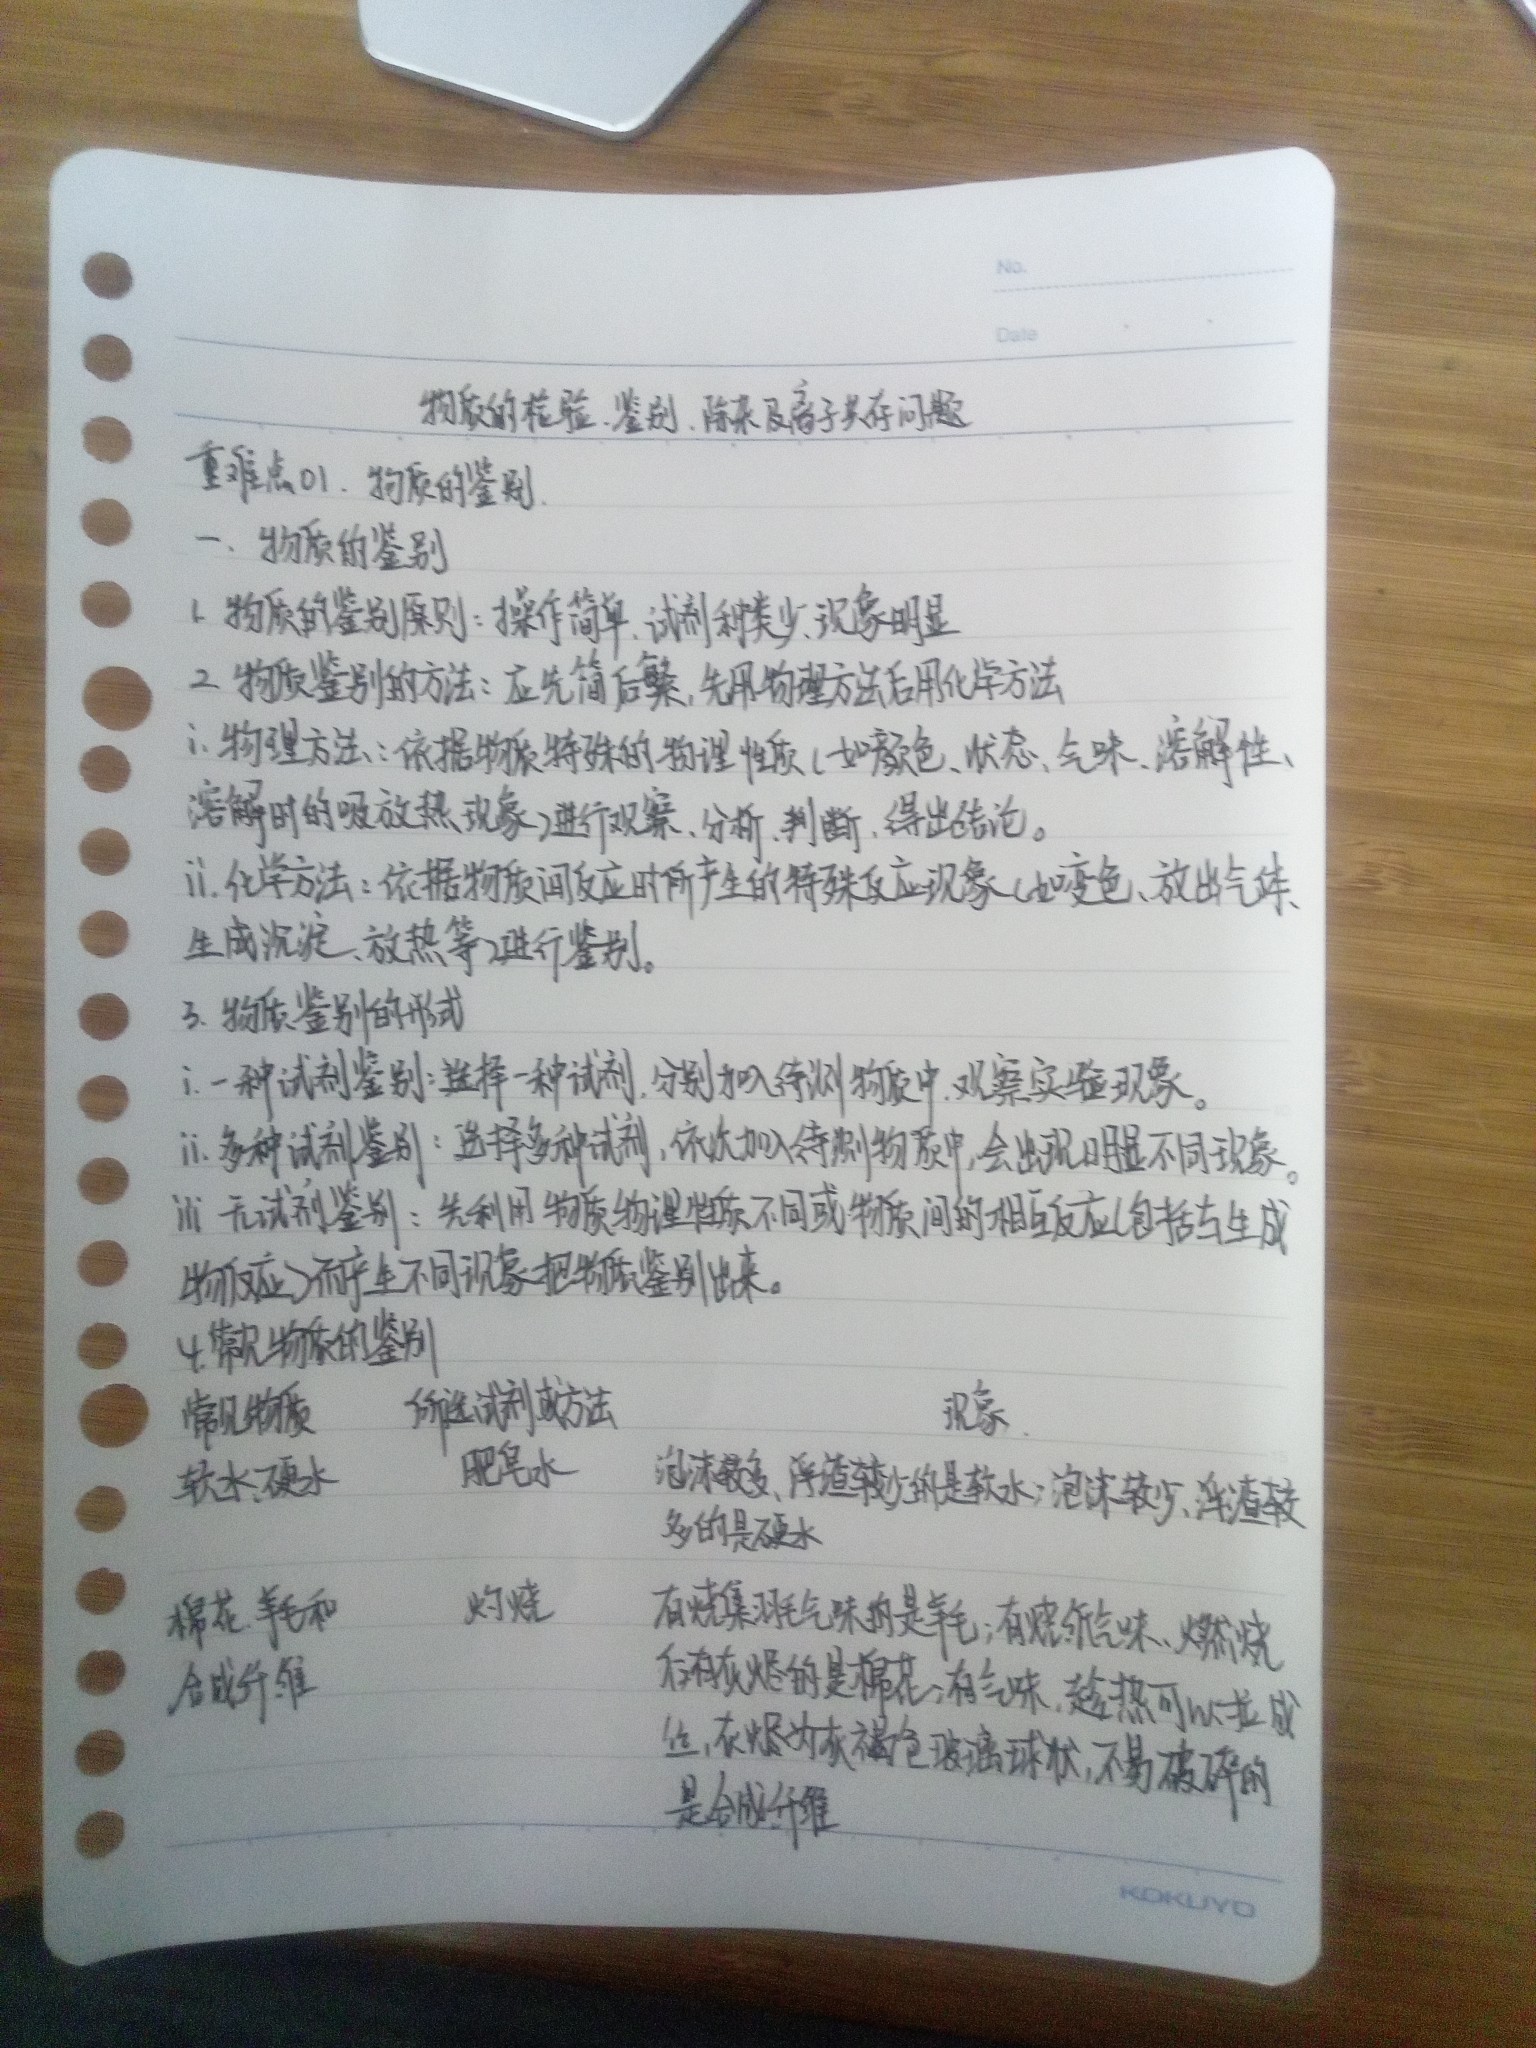 No.
Date
物质的检验、鉴别、除杂及离子共存问题
重难点01. 物质的鉴别.
一、物质的鉴别
1. 物质的鉴别原则：操作简单、试剂种类少、现象明显
2. 物质鉴别的方法：应先简后繁，先用物理方法后用化学方法
i. 物理方法：依据物质特殊的物理性质（如颜色、状态、气味、溶解性、
溶解时的吸放热现象）进行观察、分析、判断，得出结论。
ii. 化学方法：依据物质间反应时所产生的特殊反应现象（如变色、放出气体、
生成沉淀、放热等）进行鉴别。
3. 物质鉴别的形式
i. 一种试剂鉴别：选择一种试剂，分别加入待测物质中，观察实验现象。
ii. 多种试剂鉴别：选择多种试剂，依次加入待测物质中，会出现明显不同现象。
iii 无试剂鉴别：先利用物质物理性质不同或物质间的相互反应（包括与生成
物反应）而产生不同现象把物质鉴别出来。
4. 常见物质的鉴别
常见物质 所选试剂或方法 现象
软水、硬水 肥皂水 泡沫较多、浮渣较少的是软水；泡沫较少、浮渣较
多的是硬水
棉花、羊毛和 灼烧 有烧焦羽毛气味的是羊毛；有烧纸气味、燃烧
合成纤维 后有灰烬的是棉花；有气味，趁热可以拉成
丝，灰烬为灰褐色玻璃球状，不易破碎的
是合成纤维
KOKUYO